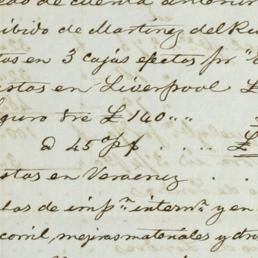 de cuenta anterior
ibido de Martinez del Rio
tos en 3 cajas efectos pr
stos en Liverpool £
guro sre £ 140 ,, ,,
a 45 o/p . . . . £
stos en Veracruz . .
las de imp.n intern.n y en
corril, mejoras materiales y dro